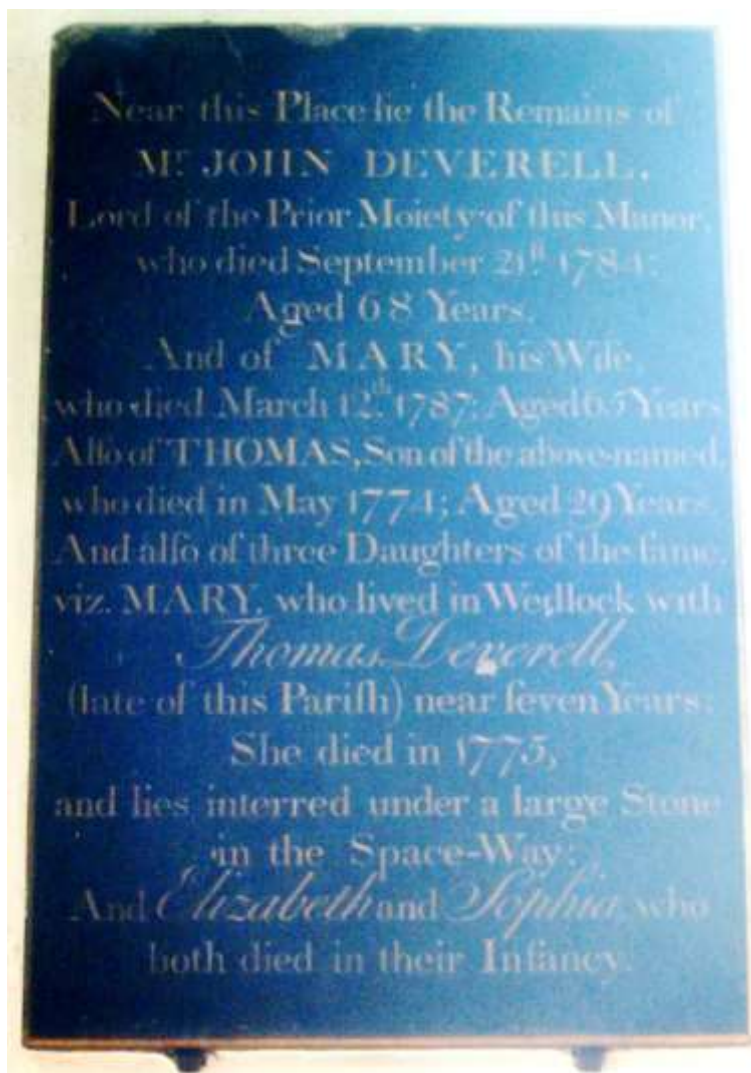 Near this Place lie the Remains of
Mr. JOHN DEVERELL,
Lord of the Prior Moiety of this Manor,
who died September 24th. 1784;
Aged 68 Years.
And of MARY, his Wife,
who died March 12th. 1787; Aged 65 Years
Alſo of THOMAS, Son of the above-named,
who died in May 1774; Aged 29 Years.
And alſo of three Daughters of the ſame,
viz. MARY, who lived in Wedlock with
Thomas Deverell,
(late of this Pariſh) near ſeven Years;
She died in 1775,
and lies interred under a large Stone
in the Space-Way;
And Elizabeth and Sophia, who
both died in their Infancy.